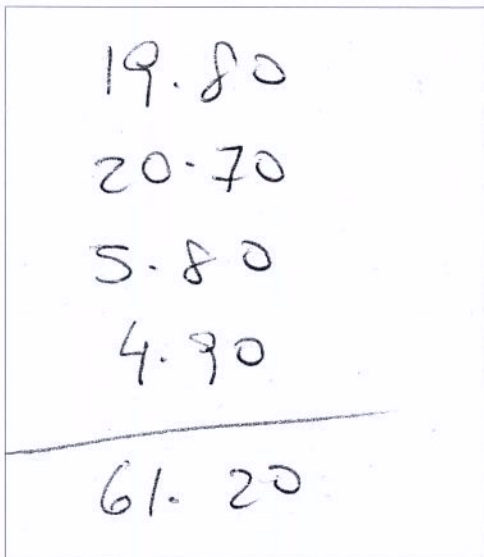 19.80
20.70
5.80
4.90
61.20